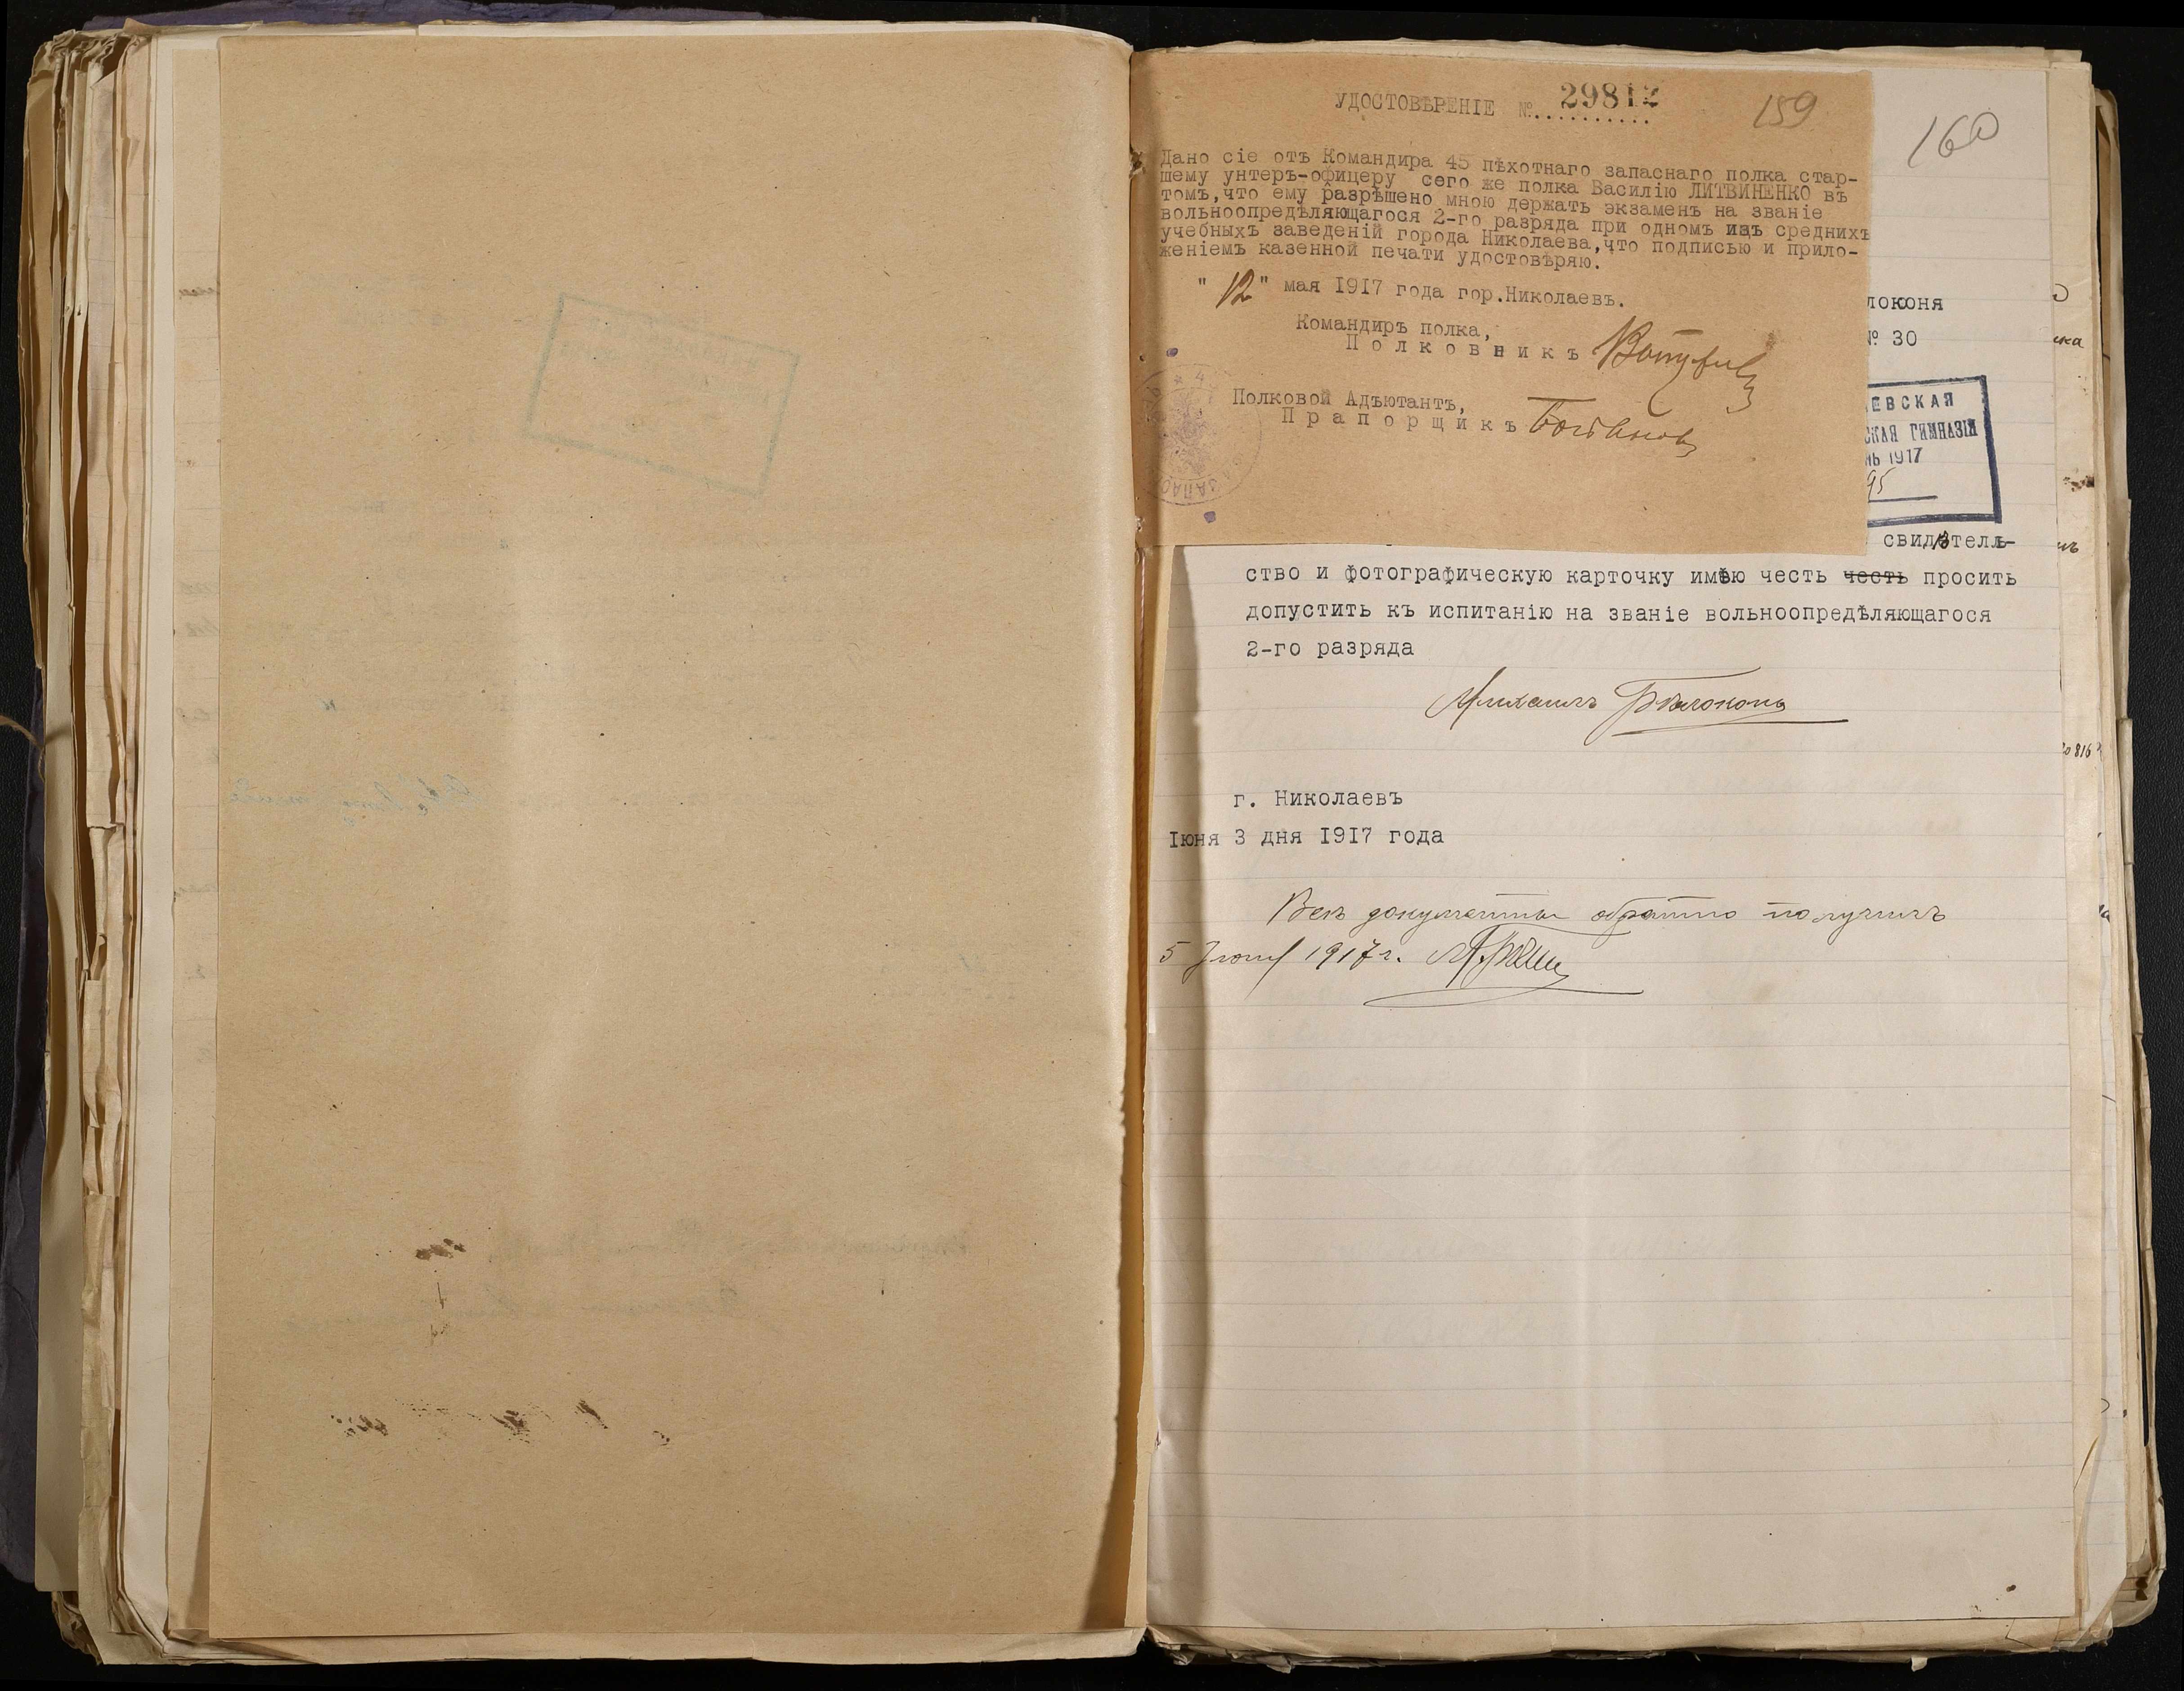 УДОСТОВѢРЕНІЕ №. 29812
159
Дано сіе отъ Командира 45 пѣхотнаго запаснаго полка стар-
шему унтеръ-офицеру сего же полка Василію ЛИТВИНЕНКО въ
томъ, что ему разрѣшено мною держать экзаменъ на званіе
вольноопредѣляющагося 2-го разряда при одномъ изъ среднихъ
учебныхъ заведеній города Николаева, что подписью и прило-
женіемъ казенной печати удостовѣряю.
"12" мая 1917 года гор.Николаевъ.
Командиръ полка,
Полковникъ
Полковой Адъютантъ,
Прапорщикъ
160
локоня
№ 30
ЕВСКАЯ
СКАЯ ГИМНАЗІЯ
НЬ 1917
95
свидѣтель-
ство и фотографическую карточку имѣю честь честь просить
допустить къ испитанію на званіе вольноопредѣляющагося
2-го разряда
Михаилъ Бѣлоконь
г. Николаевъ
Іюня 3 дня 1917 года
Всѣ документы обратно получилъ
5 Іюня 1917 г.